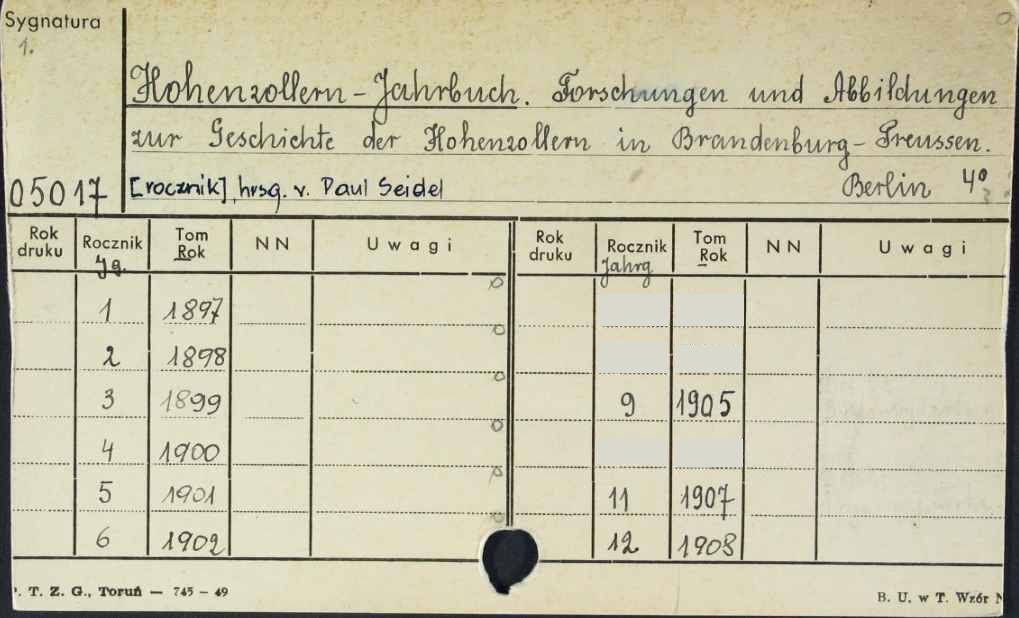 Sygnatura
1.
Hohenzollern-Jahrbuch. Forschungen und Abbildungen
zur Geschichte der Hohenzollern in Brandenburg-Preussen.
05017 [rocznik], hrsg. v. Paul Seidel Berlin 4º
Rok druku Rocznik Tom Rok NN Uwagi Rok druku Rocznik Tom Rok NN Uwagi
Jg. Jahrg
1 1897
2 1898
3 1899 9 1905
4 1900
5 1901 11 1907
6 1902 12 1908
. T. Z. G., Toruń — 745 – 49 B. U. w T. Wzór